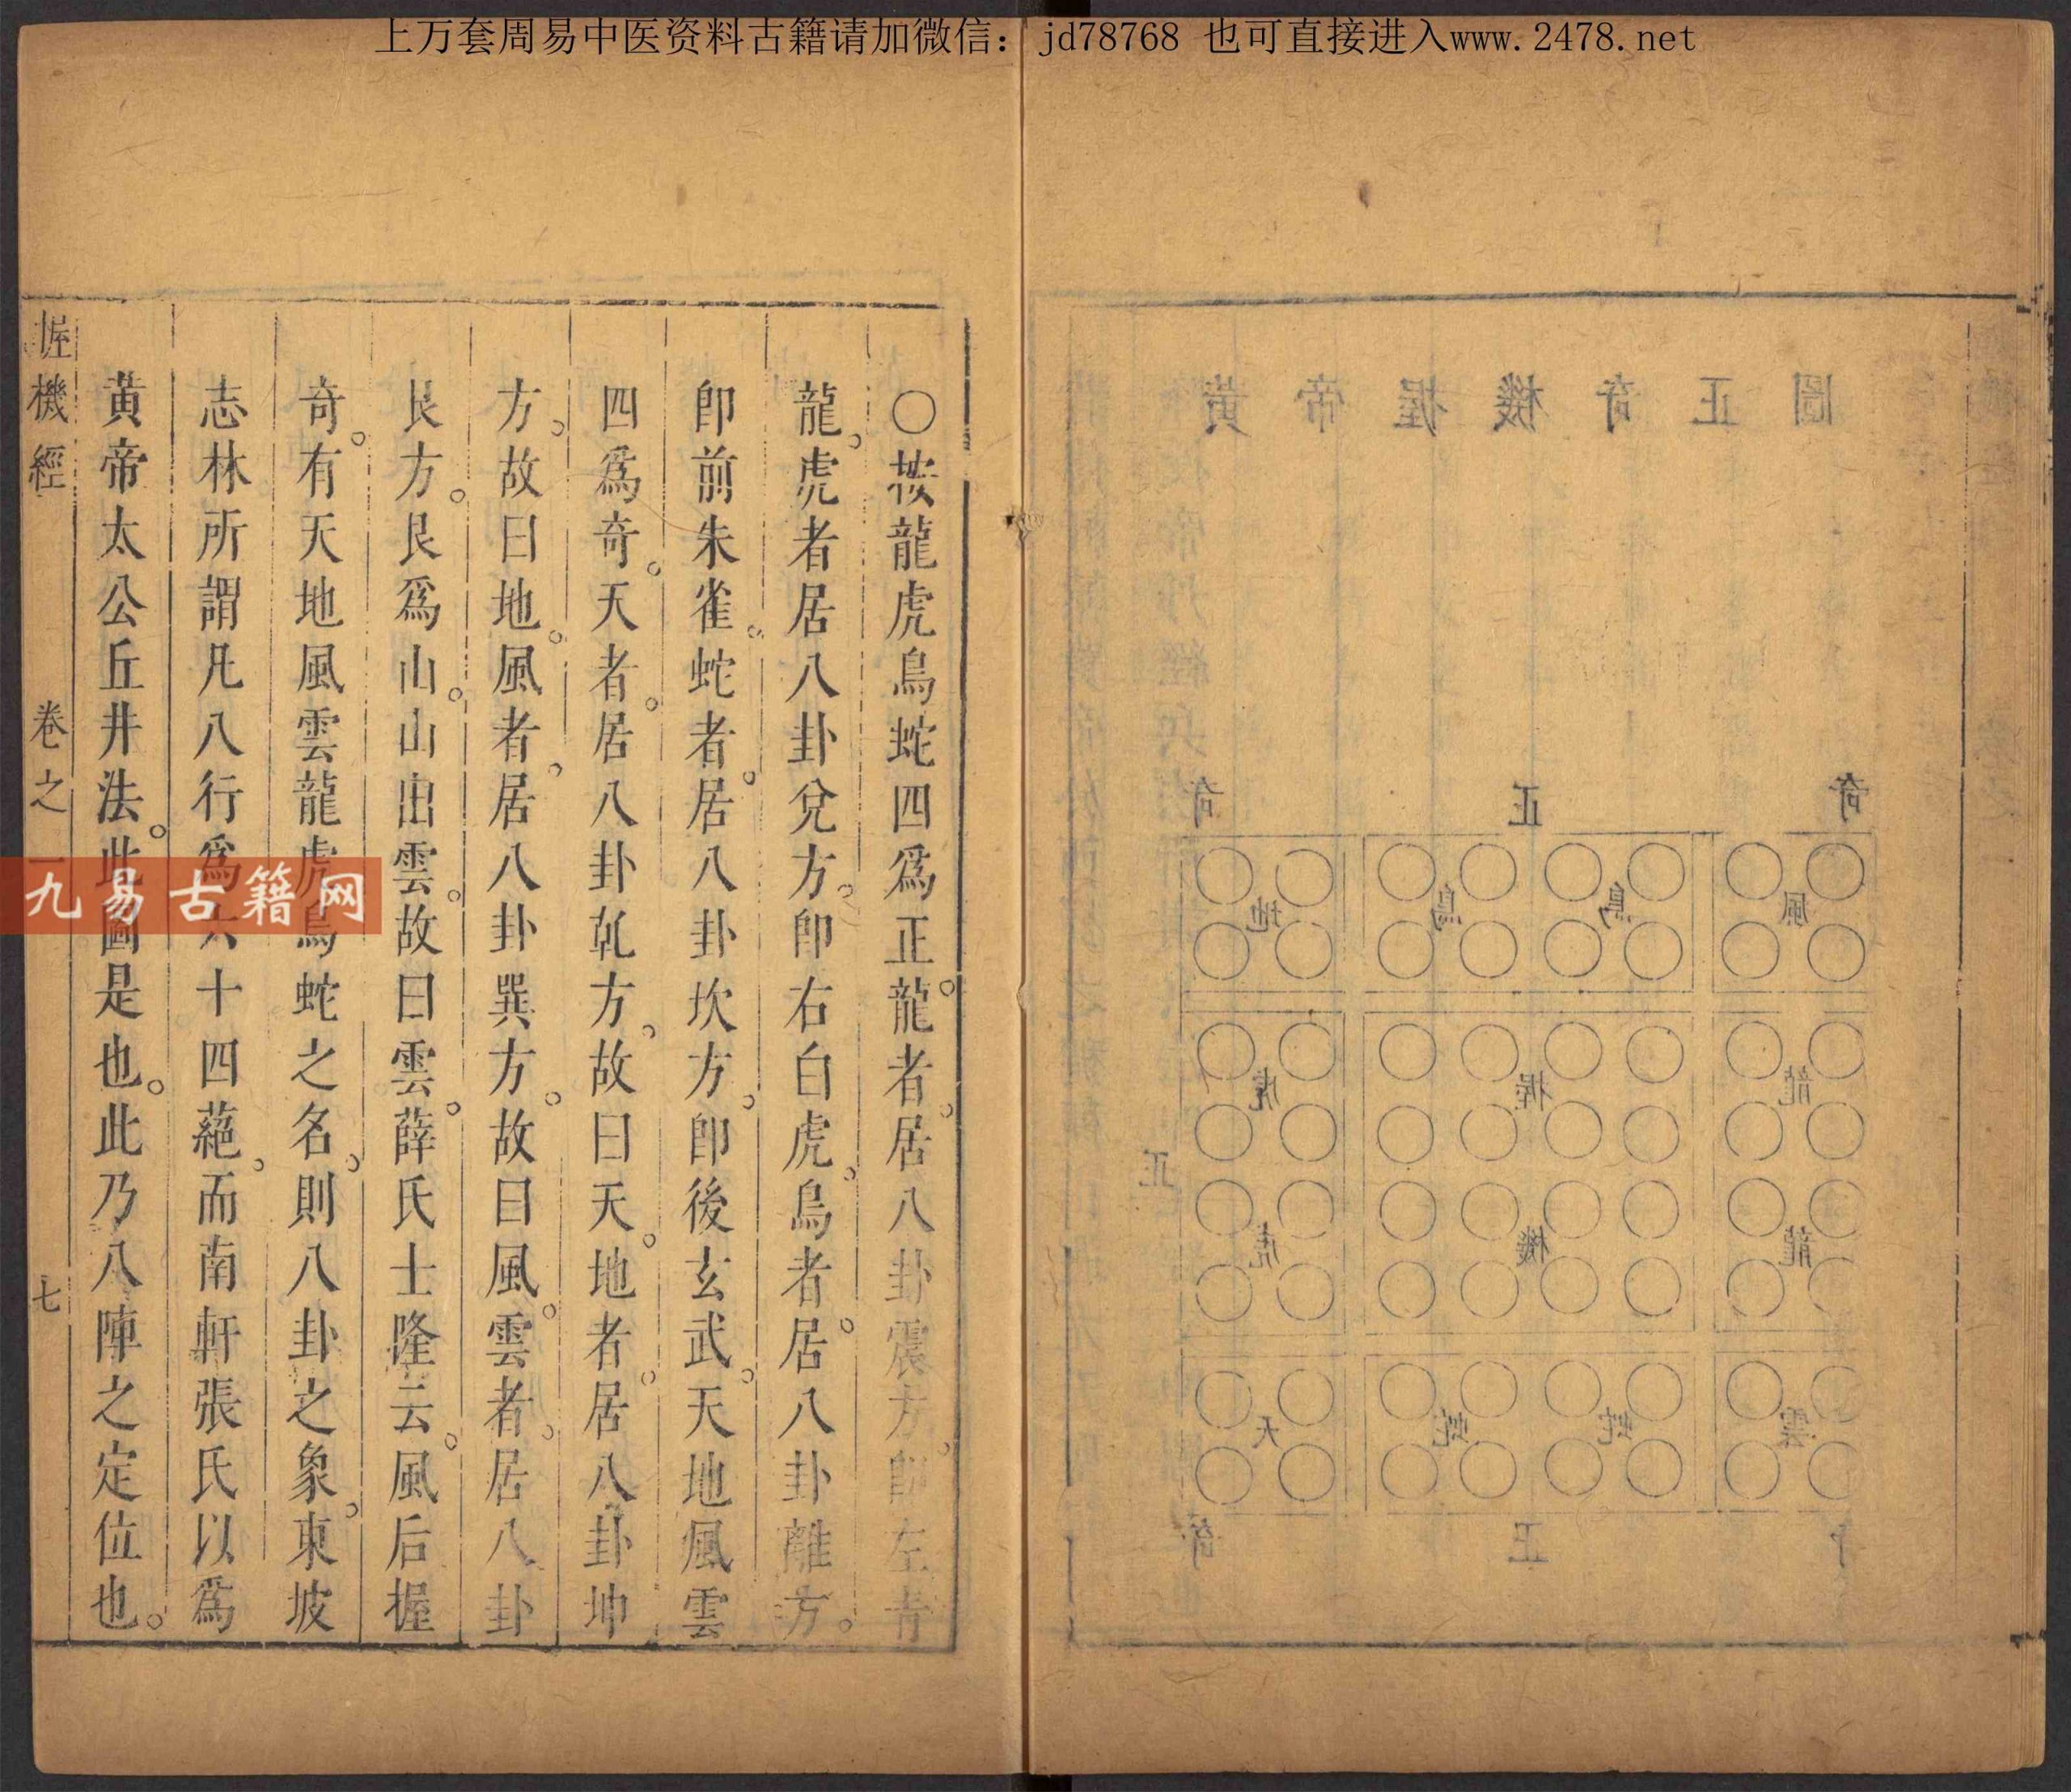 上万套周易中医资料古籍请加微信：jd78768 也可直接进入www.2478.net
黃帝握機奇正圖
奇 正 奇
地 鳥 鳥 風
虎 握 龍
正
虎 機 龍
天 蛇 蛇 雲
奇 正
〇按龍虎鳥蛇四爲正龍者居八卦震方卽左青
龍虎者居八卦兌方卽右白虎鳥者居八卦離方
卽前朱雀蛇者居八卦坎方卽後玄武天地風雲
四爲奇天者居八卦乹方故曰天地者居八卦坤
方故曰地風者居八卦巽方故曰風雲者居八卦
艮方艮爲山山出雲故曰雲薛氏士隆云風后握
奇有天地風雲龍虎鳥蛇之名則八卦之象東坡
志林所謂凡八行爲六十四蕝而南軒張氏以爲
黃帝太公丘井法此圖是也此乃八陣之定位也
握機經 卷之一 七
九易古籍网